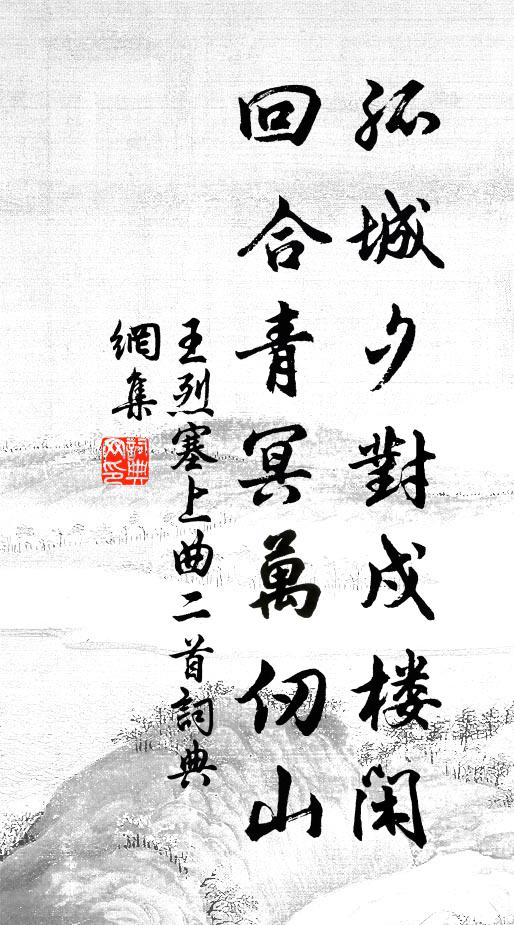 孤城夕對戍楼闲
回合青冥萬仞山
王烈塞上曲二首詞典
網集